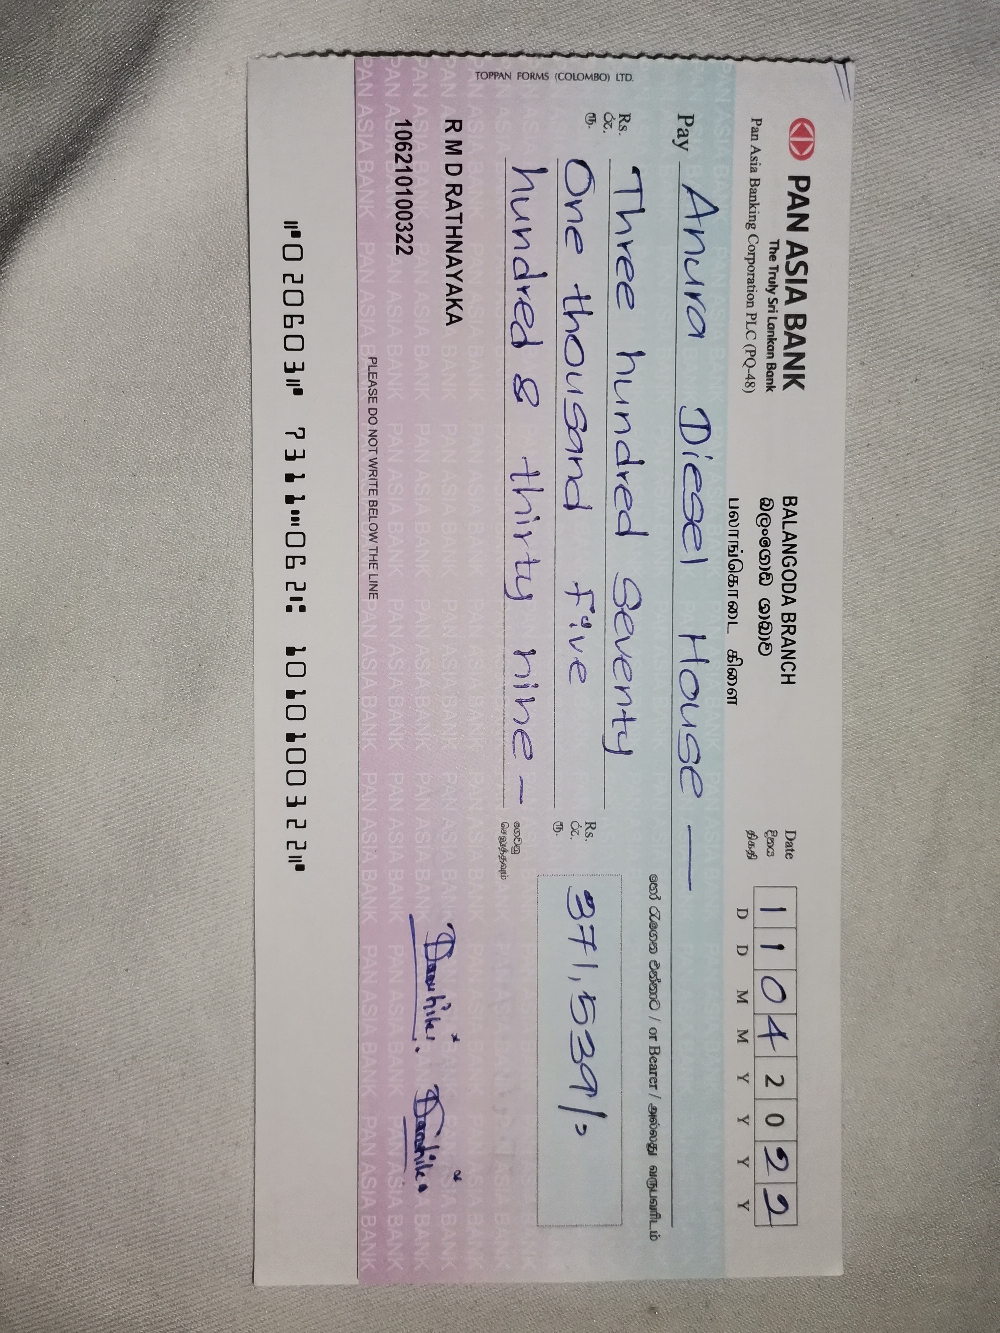 TOPPAN FORMS (COLOMBO) LTD.
PAN ASIA BANK
The Truly Sri Lankan Bank
Pan Asia Banking Corporation PLC (PQ-48)
BALANGODA BRANCH
බලංගොඩ ශාඛාව
பலாங்கொடை கிளை
Date
දිනය
திகதி
1 1 0 4 2 0 2 2
D D M M Y Y Y Y
Pay Anura Diesel House —
හෝ රැගෙන එන්නාට / or Bearer / அல்லது வருபவரிடம்
Rs.
රු.
ரூ.
Three hundred seventy
One thousand five
hundred & thirty nine —
Rs.
රු.
ரூ.
371,539/=
ගෙවනු
R M D RATHNAYAKA
106210100322
PLEASE DO NOT WRITE BELOW THE LINE
⑈020603⑈ 7311⑉062⑆ 101010032 2⑈
PAN ASIA BANK